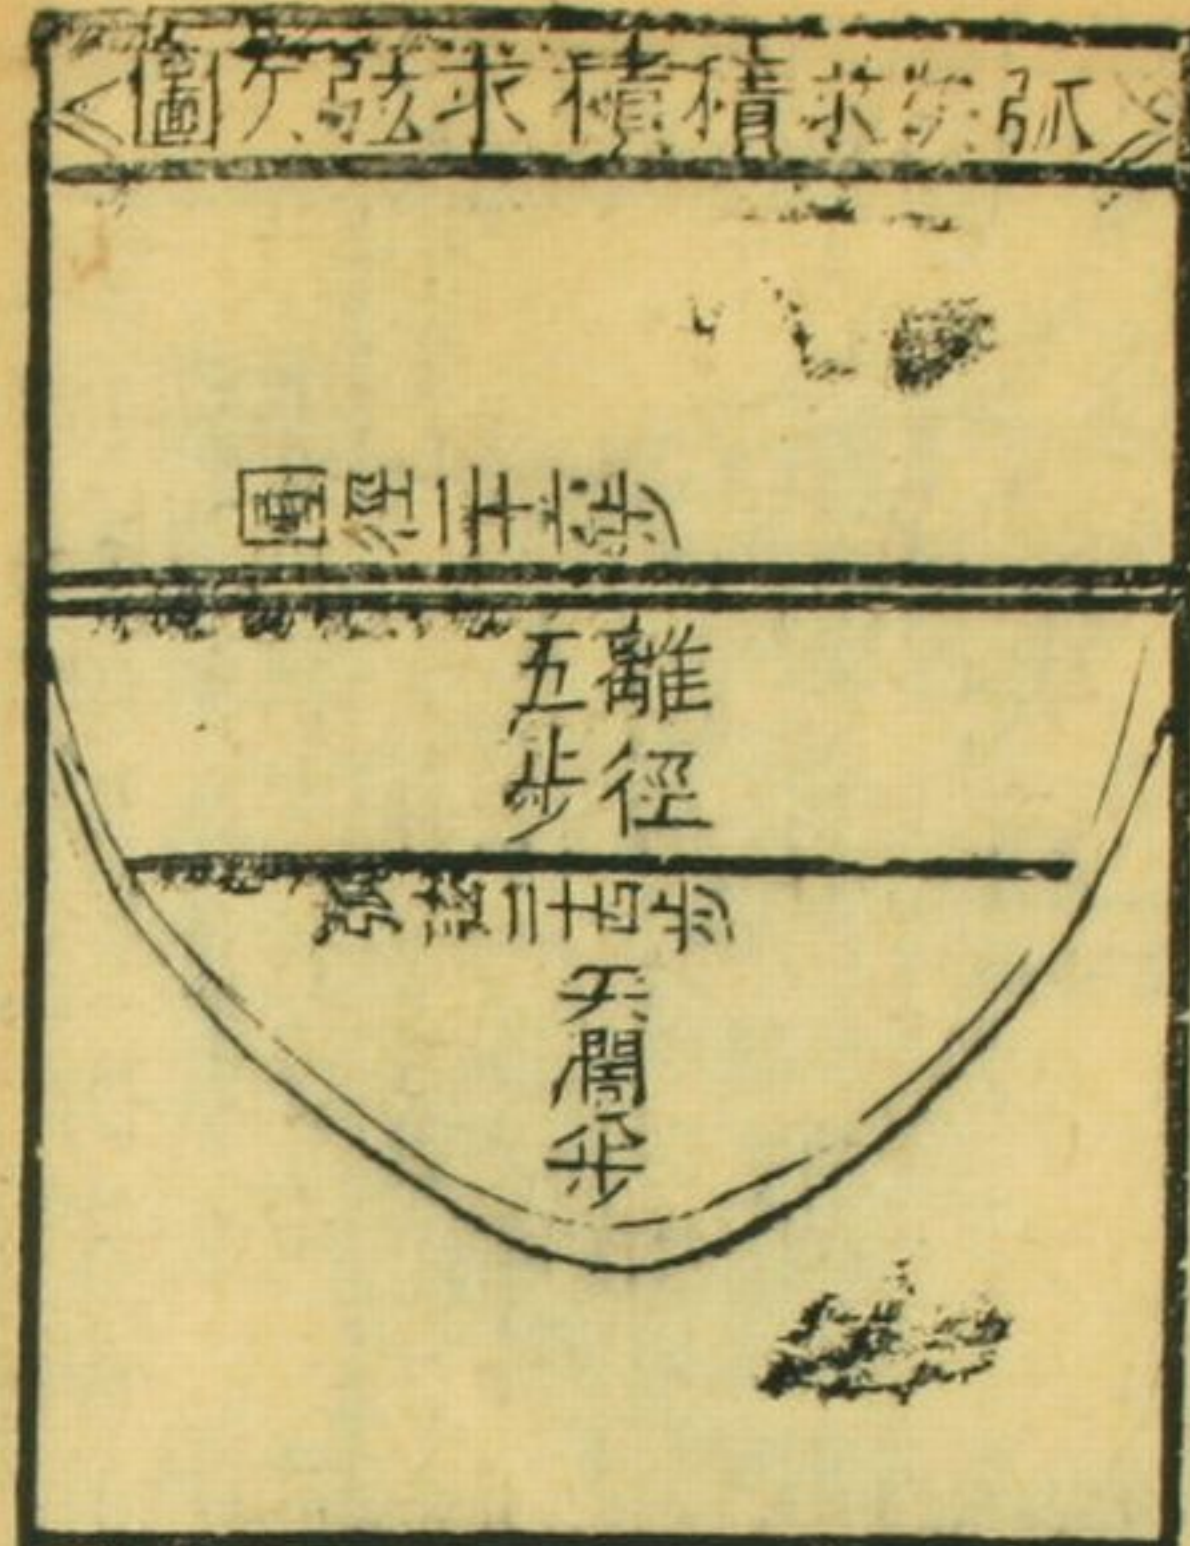 弧求積積求弦矢圖
圓徑二十六步
離徑
五步
弧弦二十四步
矢闊八步